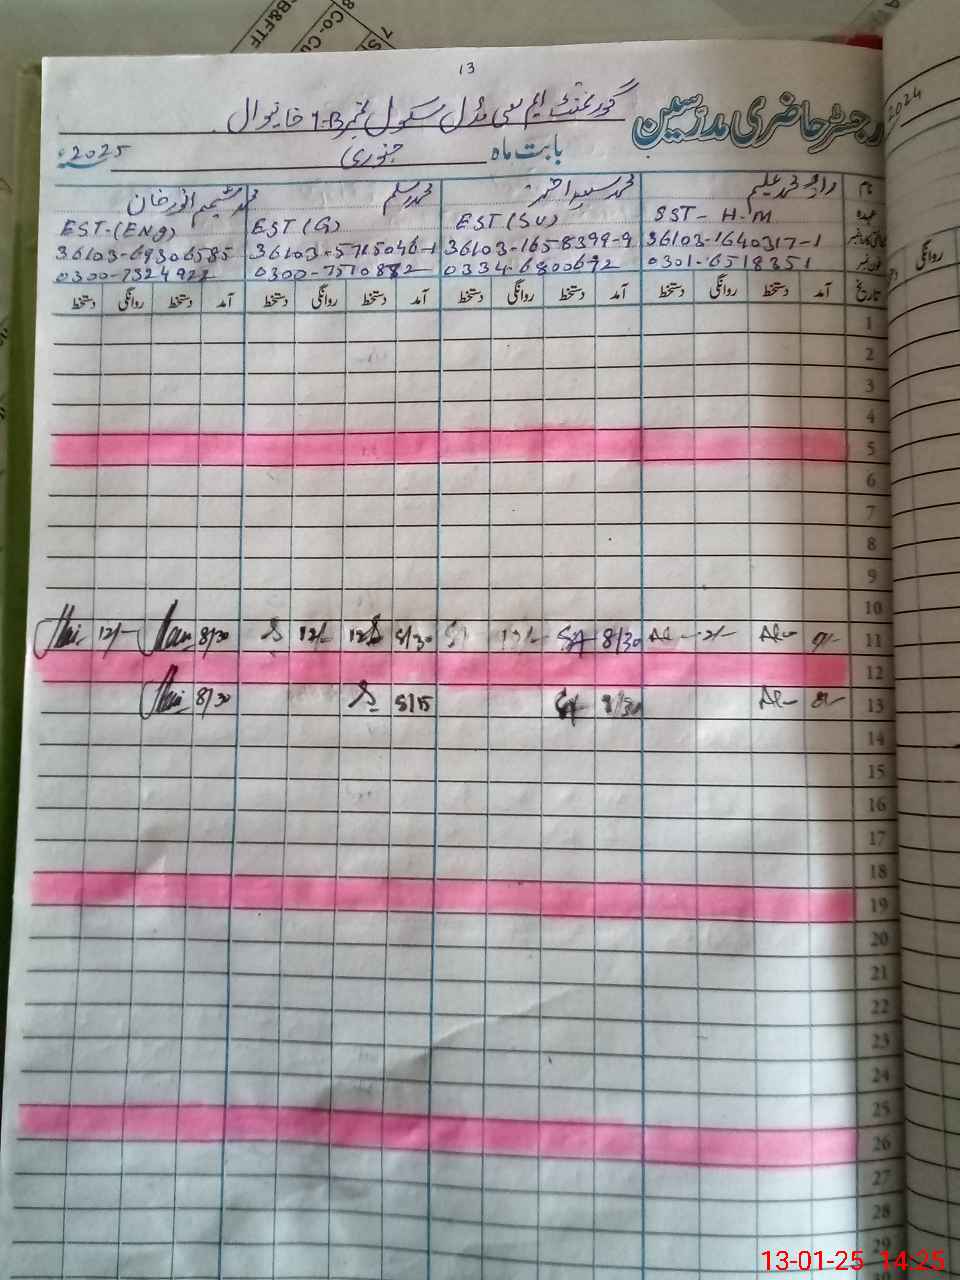 B&FTF
8 Co-Cu
13
رجسٹر حاضری مدرسین گورنمنٹ ایم سی مڈل سکول نمبر 1-B خانیوال
بابت ماہ جنوری 2025ء
2024
نام راؤ محمد علیم محمد سعید احمد محمد سلیم محمد شمیم انور خان
عہدہ SST - H.M EST (SV) EST (G) EST-(ENG)
36103-1640317-1 36103-1658399-9 36103-5715046-1 36103-6930658-5
فون نمبر 0301-6518351 0334-6800692 0300-7510882 0300-7324922
تاریخ آمد دستخط روانگی دستخط آمد دستخط روانگی دستخط آمد دستخط روانگی دستخط آمد دستخط روانگی دستخط
روانگی
1
2
3
4
5
6
7
8
9
10
11 8/30 12/- 8/30 12/- 8/30 12/-
12
13 8/30 8/15 8/30
14
15
16
17
18
19
20
21
22
23
24
25
26
27
28
29
13-01-25 14:25